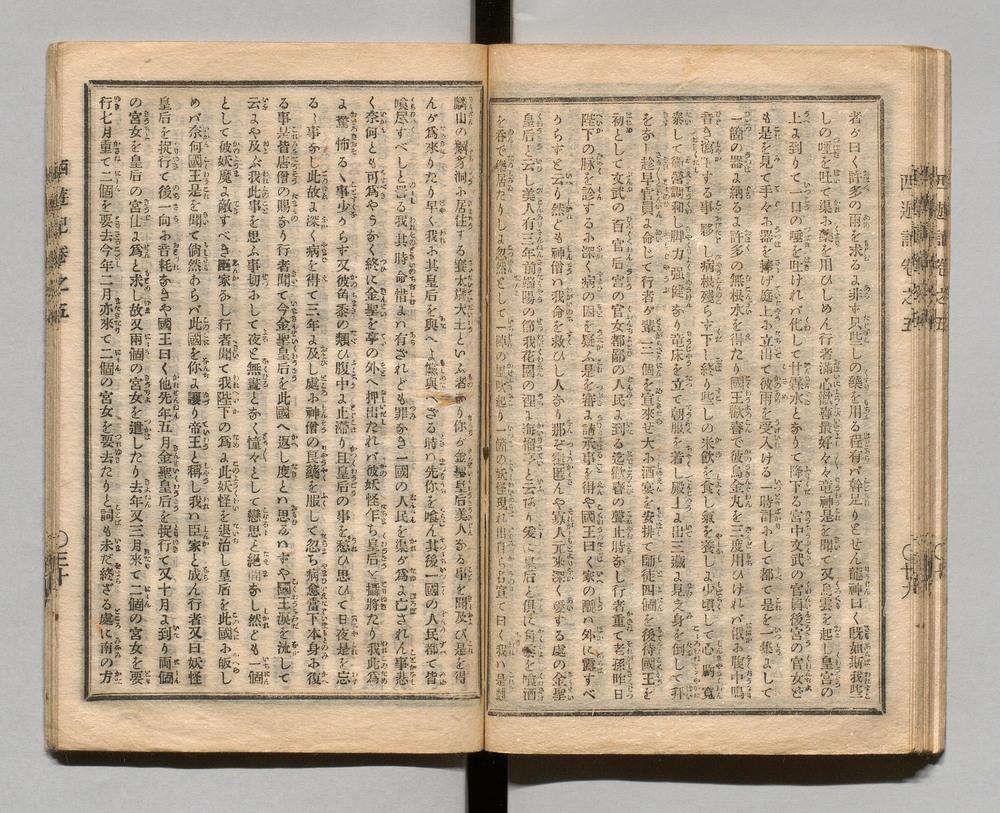 者が曰く許多の雨を求るよ非ず只些しの繞を用る程有バ幹足りとせん龍神曰く既如斯我些
しの唾を吐て渠が藥を用ひしめん行者滿心歡喜最好々々竜神是を聞て又烏雲を起し皇宮の
上よ到りて一口の唾を吐けれバ化して甘霖水となりて降下る宮中文武の官員後宮の官女ど
も是を見て手々お器を捧げ庭上お立出て彼雨を受入ける一時計おして都て是を一集よして
一箇の器よ納るよ許多の無根水を得たり國王歡喜で彼烏金丸を三度用ひけれバ俄お腹中鳴
音き瀉下する事夥し病根殘らず下し終り些しの米飮を食し氣を養しよ少頃して心胸寬
泰して衞營調和し脚力强健なり竜床を立て朝服を着し殿上よ出三藏よ見之身を倒して拜
をなし趁早官員よ命じて行者が輩三個を宣來せ大お酒宴を安排て師徒四個を後待國王を
初として文武の百官后宮の官女都鄙の人民よ到る迄歡喜の聲止時なし行者重て老孫昨日
陛下の脉を診するお深く病の因を疑ふ是を審よ請承事を得や國王曰く家の醜ハ外に露すべ
からずと云り然ども神僧ハ我命を救ひし人なり那ぞ隱匿んや寡人元來深く愛する處の金聖
皇后と云し美人有三年前端陽の節我花園の裡よ海榴亭と云
を呑で樂居たりしよ忽然として一陣の風吹起り一箇の妖怪現れ出自ら名を宣て曰く我ハ是
麟山の獬豸洞お居住する賽太歲大王といふ者なり你が金聖皇后美人なる事を聞及び是を得
んが爲來りたり早く我お其皇后を與へよ無與へざる時ハ先你を喰ん其後一國の人民都て皆
喰尽すべしと詈る我其時命惜よハ有されども罪なき一國の人民を渠が爲よ亡されん事悲
く奈何とも可爲やうなく終に金聖を亭の外へ押出たれバ彼妖怪乍ち皇后と攝將たり我此爲
よ驚怖るゝ事少からず又彼角黍の類ひ腹中よ止滯り且皇后の事を愁ひ思ひて日夜是を忘
るゝ事なし此故よ深く病を得て三年よ及し處お神僧の良藥を服して忽ち病愈當下本身お復
る事是皆唐僧の賜なり行者聞て今金聖皇后を此國へ返し度とハ思ゐハすや國王淚を流して
云よや及ぶ我此事を思ふ事切おして夜と無晝となく憧々として戀思と絕間なし然ども一個
として彼妖魔よ敵すべき國家なし行者聞て我陛下の爲よ此妖怪を退治し皇后を此國お皈し
めバ奈何國王是を聞て倘然あらバ此國を你よ讓り帝王と稱し我ハ臣家と成ん行者又曰妖怪
皇后を捉行て後一向お音耗なきや國王曰く他先年五月金聖皇后を捉行て又十月よ到り兩個
の宮女を皇后の宮仕よ爲と求し故又兩個の宮女を遣したり去年又三月來て二個の宮女を要
行七月重て二個を要去今年二月亦來て二個の宮女を要去たりと詞も未だ終ざる處に南の方
西遊記卷之五
〇三十
西遊記卷之五